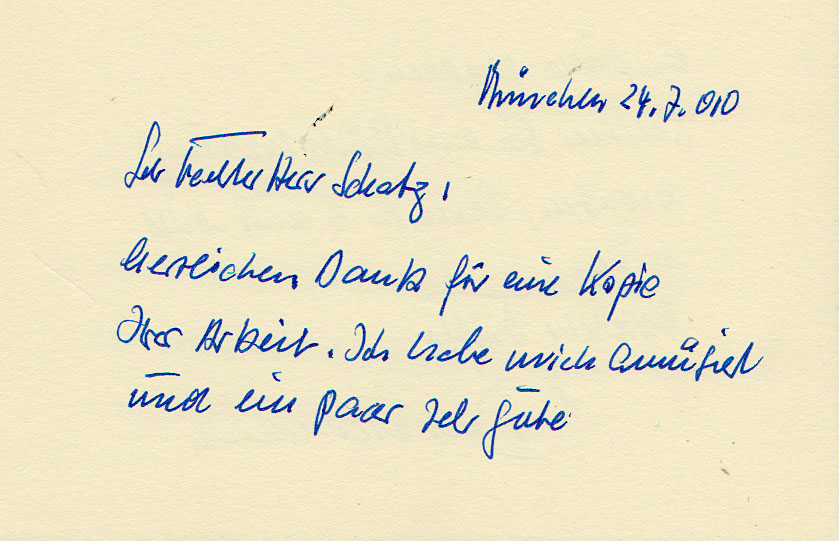 München 24.7.010
Sehr Geehrter Herr Schatz,
herzlichen Dank für eine Kopie
Ihrer Arbeit. Ich habe mich amüsiert
und ein paar sehr gute